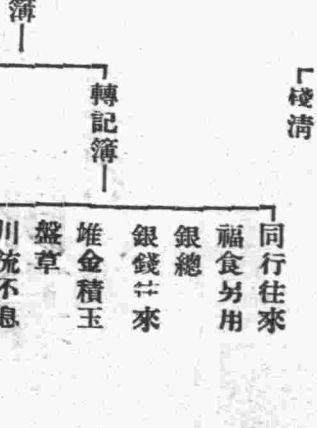 棧清
簿
轉記簿
同行往來
福食另用
銀總
銀錢往來
堆金積玉
盤草
川流不息